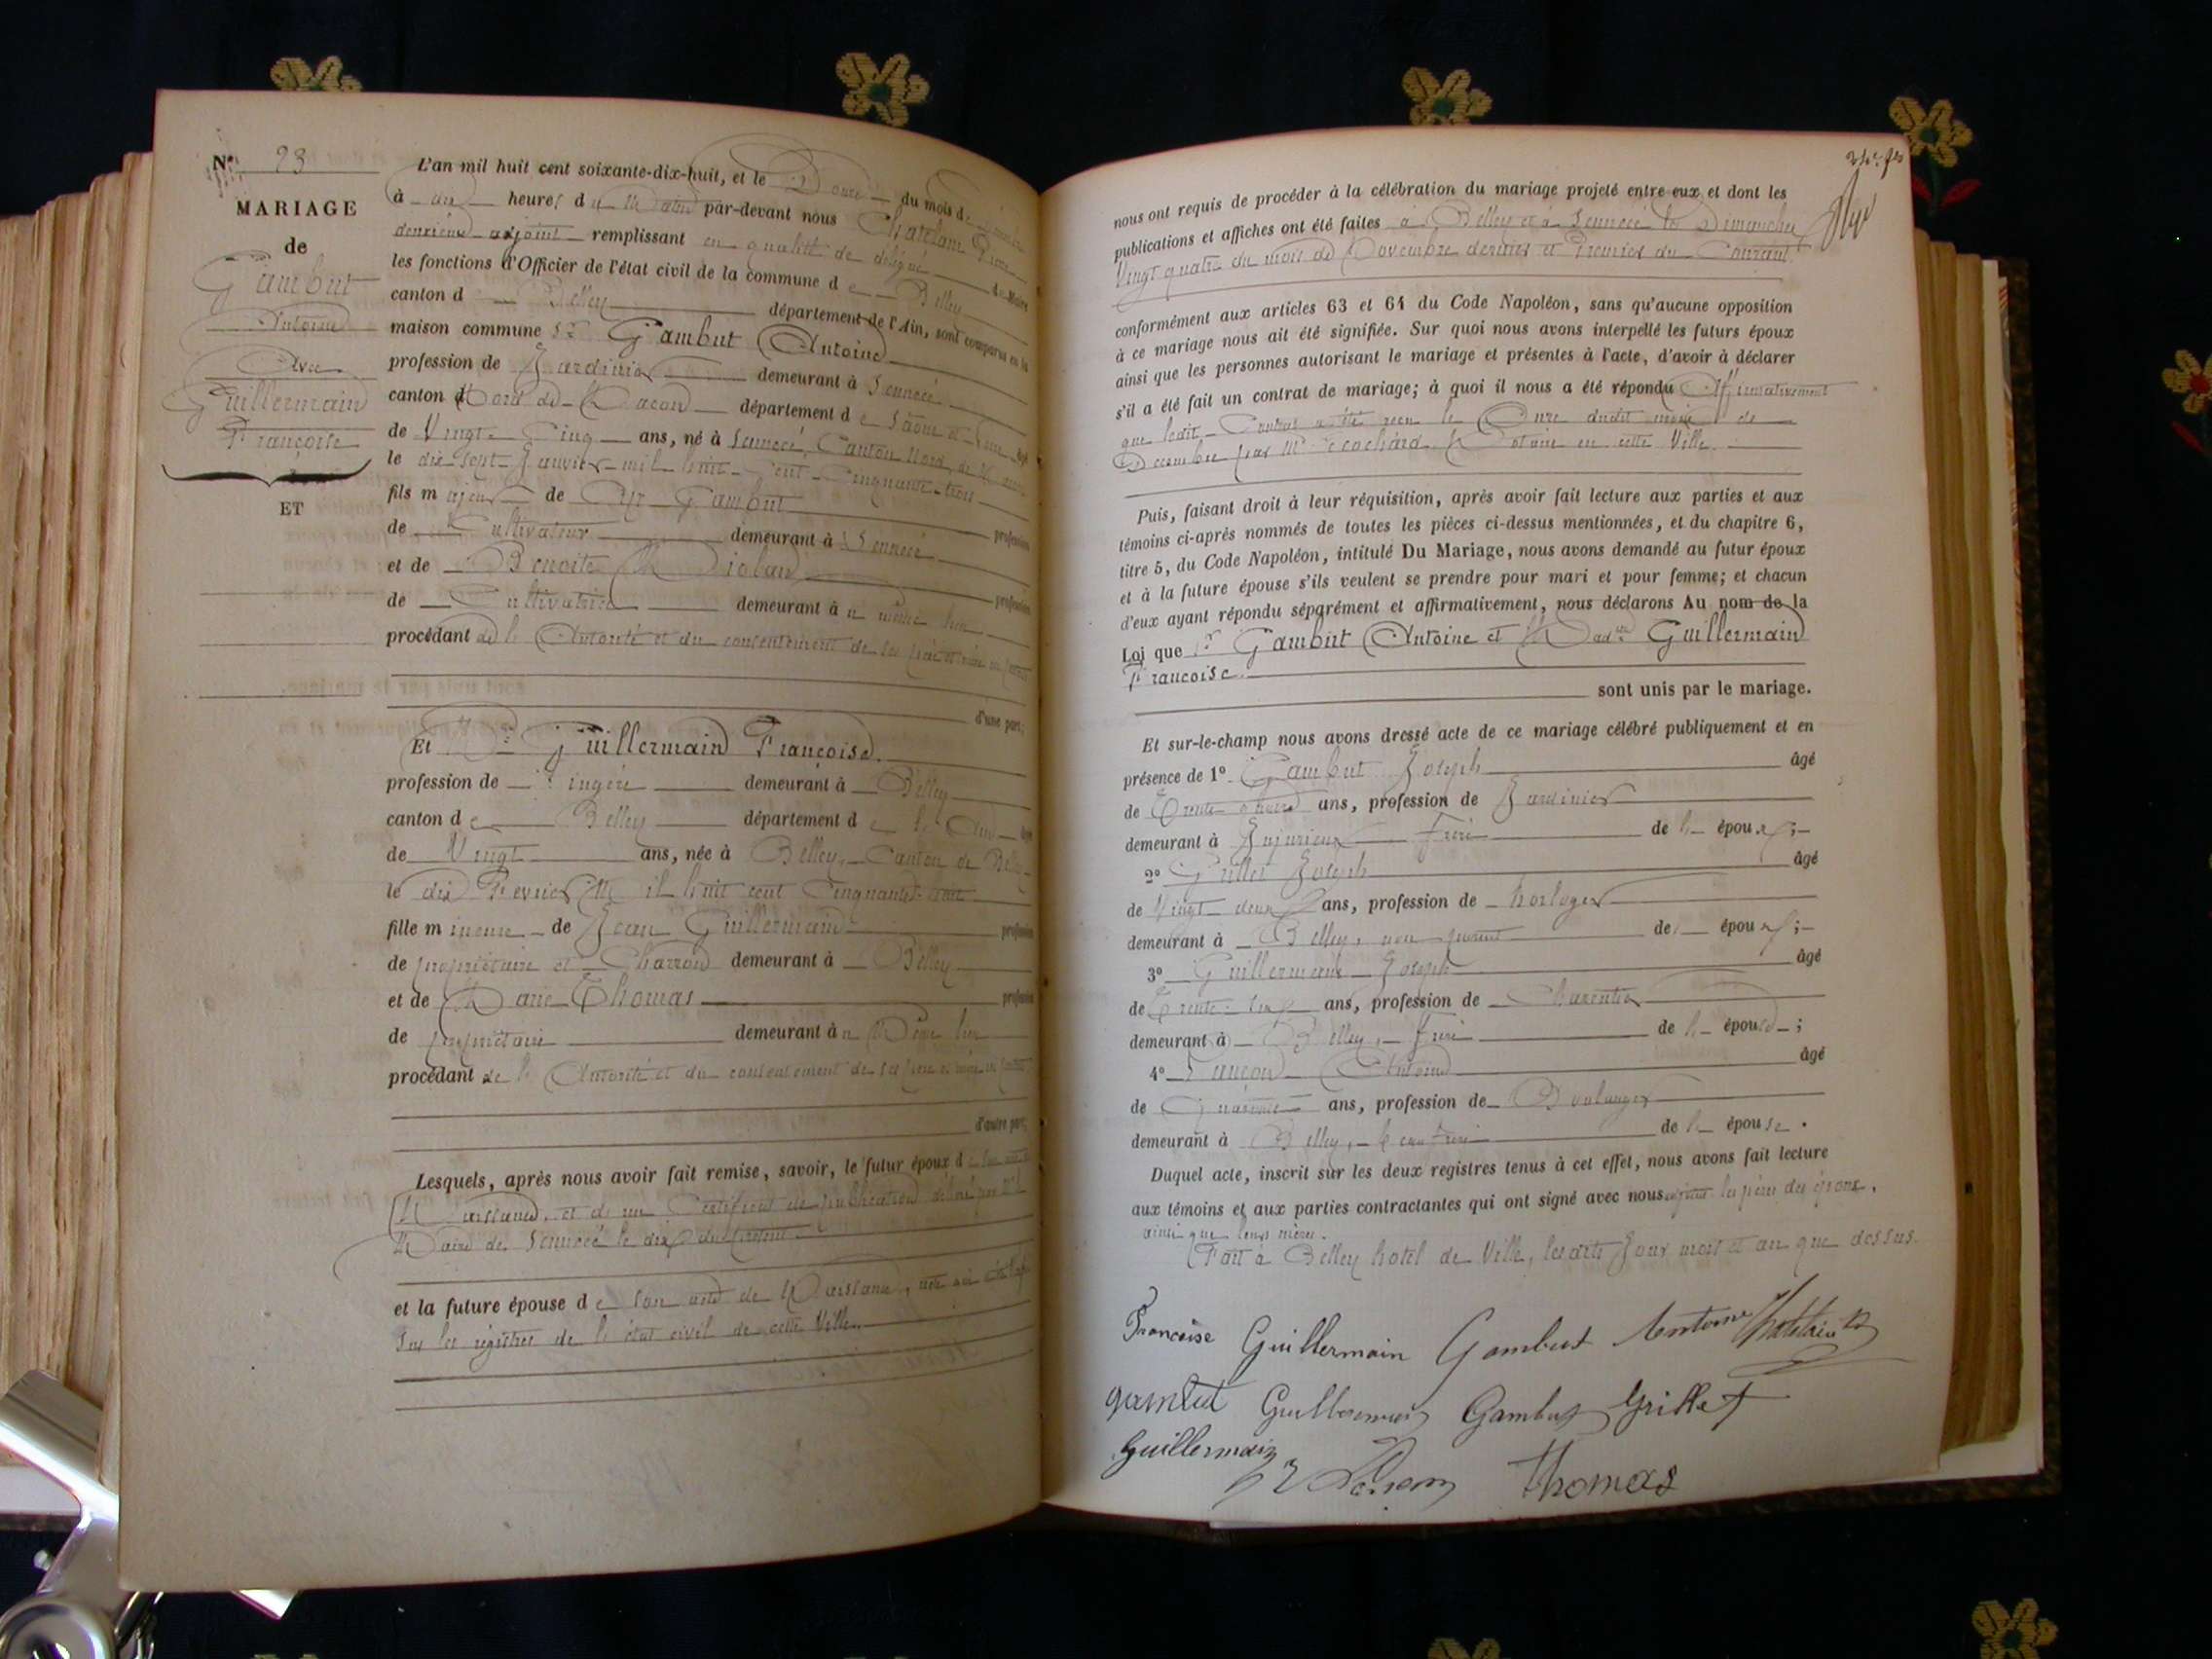 N° 23
MARIAGE
de
Gambut
Antoine
Avec
Guillermain
Françoise
ET
L'an mil huit cent soixante-dix-huit, et le Douze du mois de
à dix heures du Matin par-devant nous Chatelain
deuxième adjoint remplissant en qualité de délégué de Maire
les fonctions d'Officier de l'état civil de la commune de Belley
canton d Belley département de l'Ain, sont comparus en la
maison commune Sr Gambut Antoine
profession de Jardinier demeurant à Sennecé
canton Nord de Macon département de Saône et Loire âgé
de Vingt Cinq ans, né à Sennecé, Canton Nord, de
le dix Sept Janvier mil huit Cent Cinquante trois
fils majeur de Gambut profession
de Cultivateur demeurant à Sennecé
et de Benoite profession
de Cultivatrice demeurant à u même lieu
procédant de l'Autorité et du consentement de ses père et mère
d'une part;
Et Guillermain Françoise.
profession de Lingère demeurant à Belley
canton de Belley département de l'Ain âgé
de Vingt ans, née à Belley, Canton de Belley
le dix Fevrier Mil huit cent Cinquante huit
fille mineure de Jean Guillermain profession
de propriétaire et Charron demeurant à Belley
et de Marie Thomas profession
de propriétaire demeurant à u Même lieu
procédant de l'Autorité et du consentement de ses père et mère
d'autre part,
Lesquels, après nous avoir fait remise, savoir, le futur époux de son acte
Naissance, et de un Certificat de publication délivré par Mr le
Maire de Sennecé le dix du présent
et la future épouse de son acte de Naissance,
sur les régistres de l'état civil de cette Ville.
nous ont requis de procéder à la célébration du mariage projeté entre eux et dont les
publications et affiches ont été faites à Belley et à Sennecé les Dimanches
Vingt quatre du mois de Novembre dernier et Premier du Courant
conformément aux articles 63 et 64 du Code Napoléon, sans qu'aucune opposition
à ce mariage nous ait été signifiée. Sur quoi nous avons interpellé les futurs époux
ainsi que les personnes autorisant le mariage et présentes à l'acte, d'avoir à déclarer
s'il a été fait un contrat de mariage; à quoi il nous a été répondu Affirmativement
que ledit Contrat a été reçu le Onze dudit mois de
Décembre par Me Notaire en cette Ville.
Puis, faisant droit à leur réquisition, après avoir fait lecture aux parties et aux
témoins ci-après nommés de toutes les pièces ci-dessus mentionnées, et du chapitre 6,
titre 5, du Code Napoléon, intitulé Du Mariage, nous avons demandé au futur époux
et à la future épouse s'ils veulent se prendre pour mari et pour femme; et chacun
d'eux ayant répondu séparément et affirmativement, nous déclarons Au nom de la
Loi que Sr Gambut Antoine et Guillermain
Françoise
sont unis par le mariage.
Et sur-le-champ nous avons dressé acte de ce mariage célébré publiquement et en
présence de 1° Gambut Joseph âgé
de Trente ans, profession de Jardinier
demeurant à Jujurieux Frère de l' époux;
2° Grillet Joseph âgé
de Vingt deux ans, profession de horloger
demeurant à Belley, non parent de époux;
3° Guillermain Joseph âgé
de Trente ans, profession de Charpentier
demeurant à Belley, Frère de l' épouse;
4° Antoine âgé
de Quarante ans, profession de Boulanger
demeurant à Belley, beau frère de l' épouse.
Duquel acte, inscrit sur les deux registres tenus à cet effet, nous avons fait lecture
aux témoins et aux parties contractantes qui ont signé avec nous les pères des époux,
ainsi que leurs mères.
Fait à Belley hotel de Ville, les dits Jour mois et an que dessus.
Françoise Guillermain Gambut Antoine Chatelain
gambut Guillermain Gambut Grillet
Guillermain
Thomas